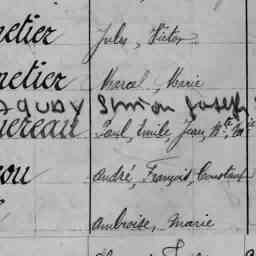 netier Jules, Victor
netier Marcel, Marie
AQUAY Simon Joseph
uereau Paul, Emile, Jean, Mie
ou André, François, Constant
Ambroise, Marie